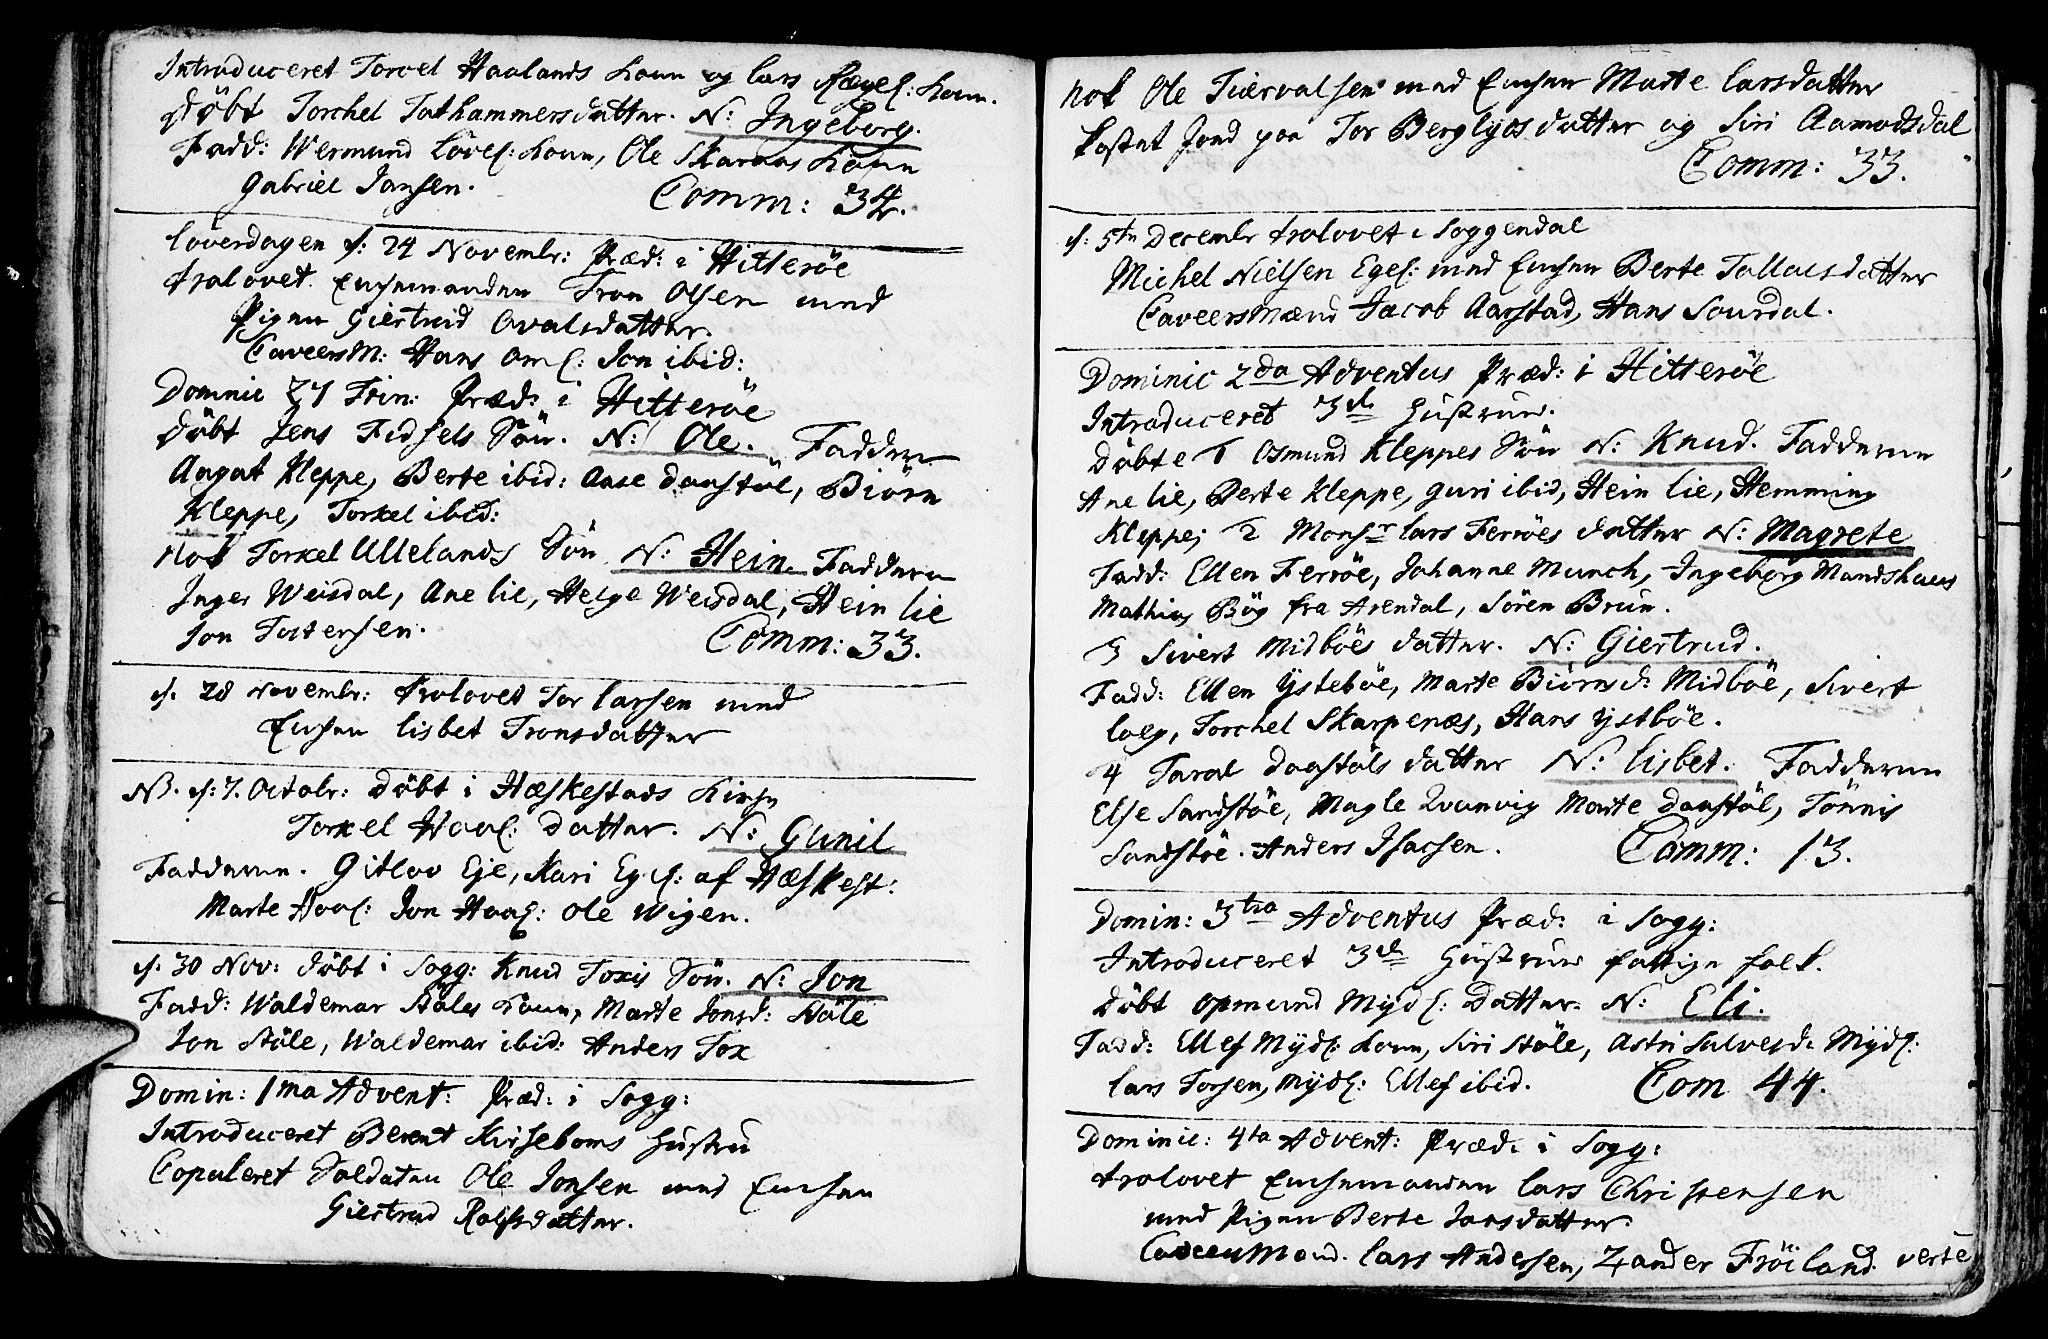 Introduceret Torcel Haalands Koun og Lars Rægef: Koun.
Døbt Torchel Tothammersdatter. N: Ingeborg.
Fadd: Wermund Lovef: Koun, Ole Skaraas Koun
Gabriel Jansen. Comm: 34.
Løverdagen d: 24 Novembr: Præd: i Hitterøe
trolovet Enkemanden Tron Olsen med
Pigen Giertrud Ovalsdatter.
Caveersm: Hans Om: Jon ibid:
Domnic 27 Trin: Præd: i Hitterøe
Døbt Jens Fidsels Søn. N: Ole. Fadderne
Aagat Kleppe, Berte ibid: Aase Danstøl, Biørn
Kleppe, Torkel ibid:
Nok Torkel Ullelands Søn N: Hein. Fadderne
Inger Weisdal, Ane Lie, Helge Weisdal, Hein Lie
Jon Tostensen. Comm: 33.
d. 28 Novembr: trolovet Tor Larsen med
Enken Lisbet Tronsdatter
NB. d: 7. Octobr: Døbt i Hæskestads Kirke
Torkel Haaf: Datter. N: Gunil
Fadderne. Gitlov Eje, Kari Egef: af Hæskest:
Marte Haaf: Jon Haaf: Ole Wigen.
d. 30 Nov: døbt i Sogg: Knud Toxis Søn. N: Jon
Fadd: Waldemar Støles Koun, Marte Jonsd: Støle
Jon Støle, Waldemar ibid: Anders Tox
Domin: 1ma Advent: Præd: i Sogg:
Introduceret Berent Kirseboms Hustru
Copuleret Soldaten Ole Jonsen med Enken
Giertrud Rolfsdatter.
Nok Ole Tiærvalsen med Enken Marte Larsdatter
Kastet Jord paa Tor Berglyds datter og Siri Aamodsdal
Comm: 33.
d: 5te Decembr trolovet i Soggendal
Michel Nielsen Egef: med Enken Berte Tollaisdatter
Caveersmænd Jacob Aarstad, Hans Sourdal.
Dominic 2da Adventus Præd: i Hitterøe
Introduceret 3de Hustruer.
Døbte 1 Osmund Kleppes Søn N: Knud. Fadderne
Ane Lie, Berte Kleppe, Guri ibid, Hein Lie, Hemming
Kleppe; 2 Monsr Lars Ferrøes datter N: Magrete
Fadd: Ellen Ferrøe, Johanne Munch, Ingeborg Mandshaus
Mathias Bøg fra Arendal, Søren Brun.
3 Sivert Midbøes datter. N: Giertrud.
Fadd: Ellen Ystebøe, Marte Biørnsd: Midbøe, Sivert
Loeg, Torchel Skarpenæs, Hans Ystbøe.
4 Taral Danstøls datter N: Lisbet. Fadderne
Else Sandstøe, Magle Qvanvig Marte Danstøl, Tønnis
Sandstøe. Anders Isacsen. Comm: 13.
Domin: 3tia Adventus Præd: i Sogg:
Introduceret 3de Hustruer fattige folk.
Døbt Opmund Mydl: Datter. N: Eli.
Fadd: Ellef Mydl: Koun, Siri Støle, Astri Salvesd: Mydl:
Lars Torsen, Mydl: Ellef ibid. Com 44.
Dominic: 4ta Advent: Præd. i Sogg:
trolovet Enkemanden Lars Christensen
med Pigen Berte Larsdatter.
Caveersmænd. Lars Andersen, Zander Frøiland verte